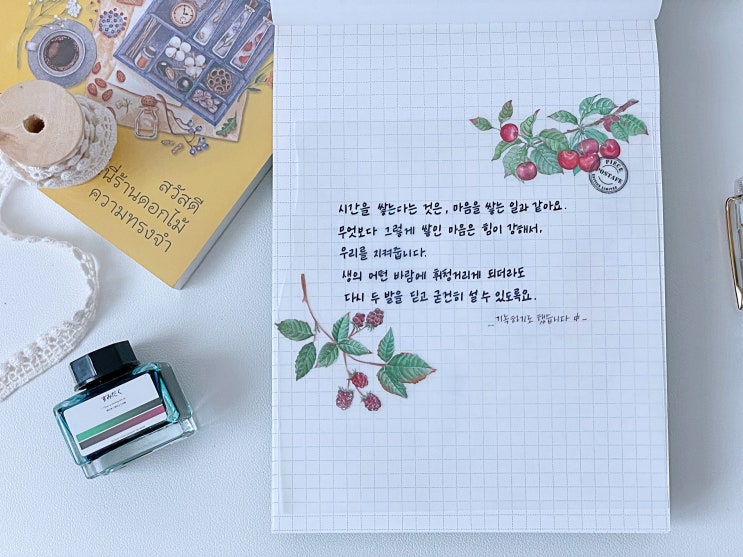 สวัสดี
นี่ร้านดอกไม้
ความทรงจำ
PIECE
시간을 쌓는다는 것은, 마음을 쌓는 일과 같아요.
무엇보다 그렇게 쌓인 마음은 힘이 강해서,
우리를 지켜줍니다.
생의 어떤 바람에 휘청거리게 되더라도
다시 두 발을 딛고 굳건히 설 수 있도록요.
기록하기로 했습니다 中
すみだく